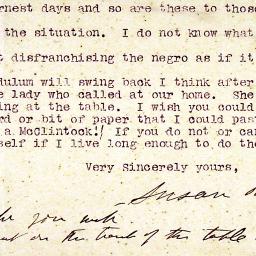 rnest days and so are these to those
the situation. I do not know what
t disfranchising the negro as if it
dulum will swing back I think after
e lady who called at our home. She
ing at the table. I wish you could
rd or bit of paper that I could past
a McClintock!! If you do not or can
self if I live long enough to do the
Very sincerely yours,
Susan
you wish
out on the trunk of the table